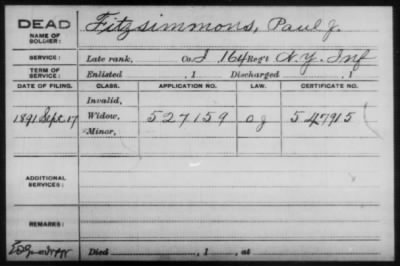 DEAD Fitzsimmons, Paul J.
NAME OF SOLDIER:
SERVICE: Late rank, Co. I 164 Reg't N.Y. Inf
TERM OF SERVICE: Enlisted , 1 Discharged , 1
DATE OF FILING. CLASS. APPLICATION NO. LAW. CERTIFICATE NO.
Invalid,
1891 Sept 17 Widow, 527159 547915
Minor,
ADDITIONAL SERVICES:
REMARKS:
Died , 1 , at